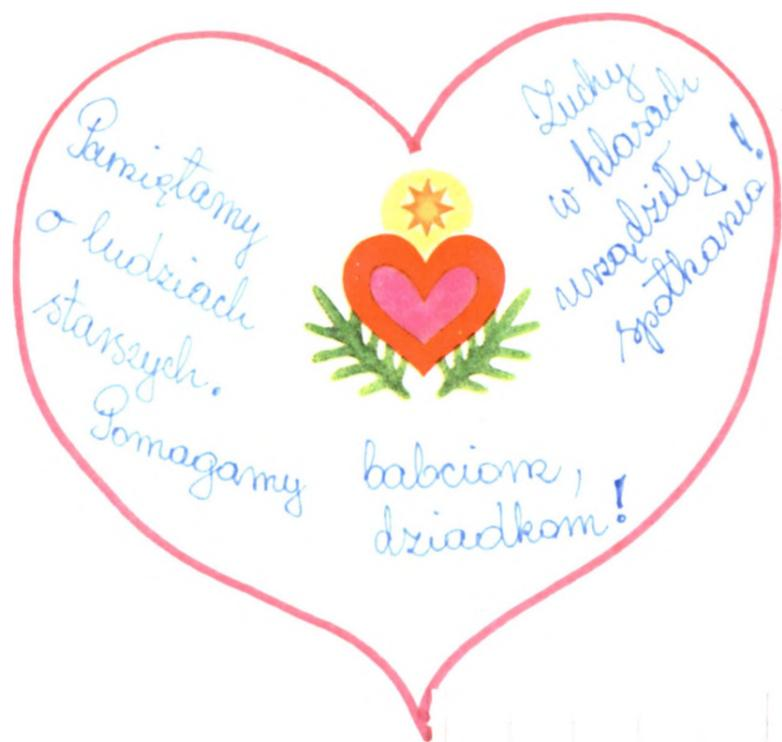 Pamiętamy
o ludziach
starszych.
Pomagamy
babciom,
dziadkom!
Zuchy
w klasach
urządziły
spotkania!